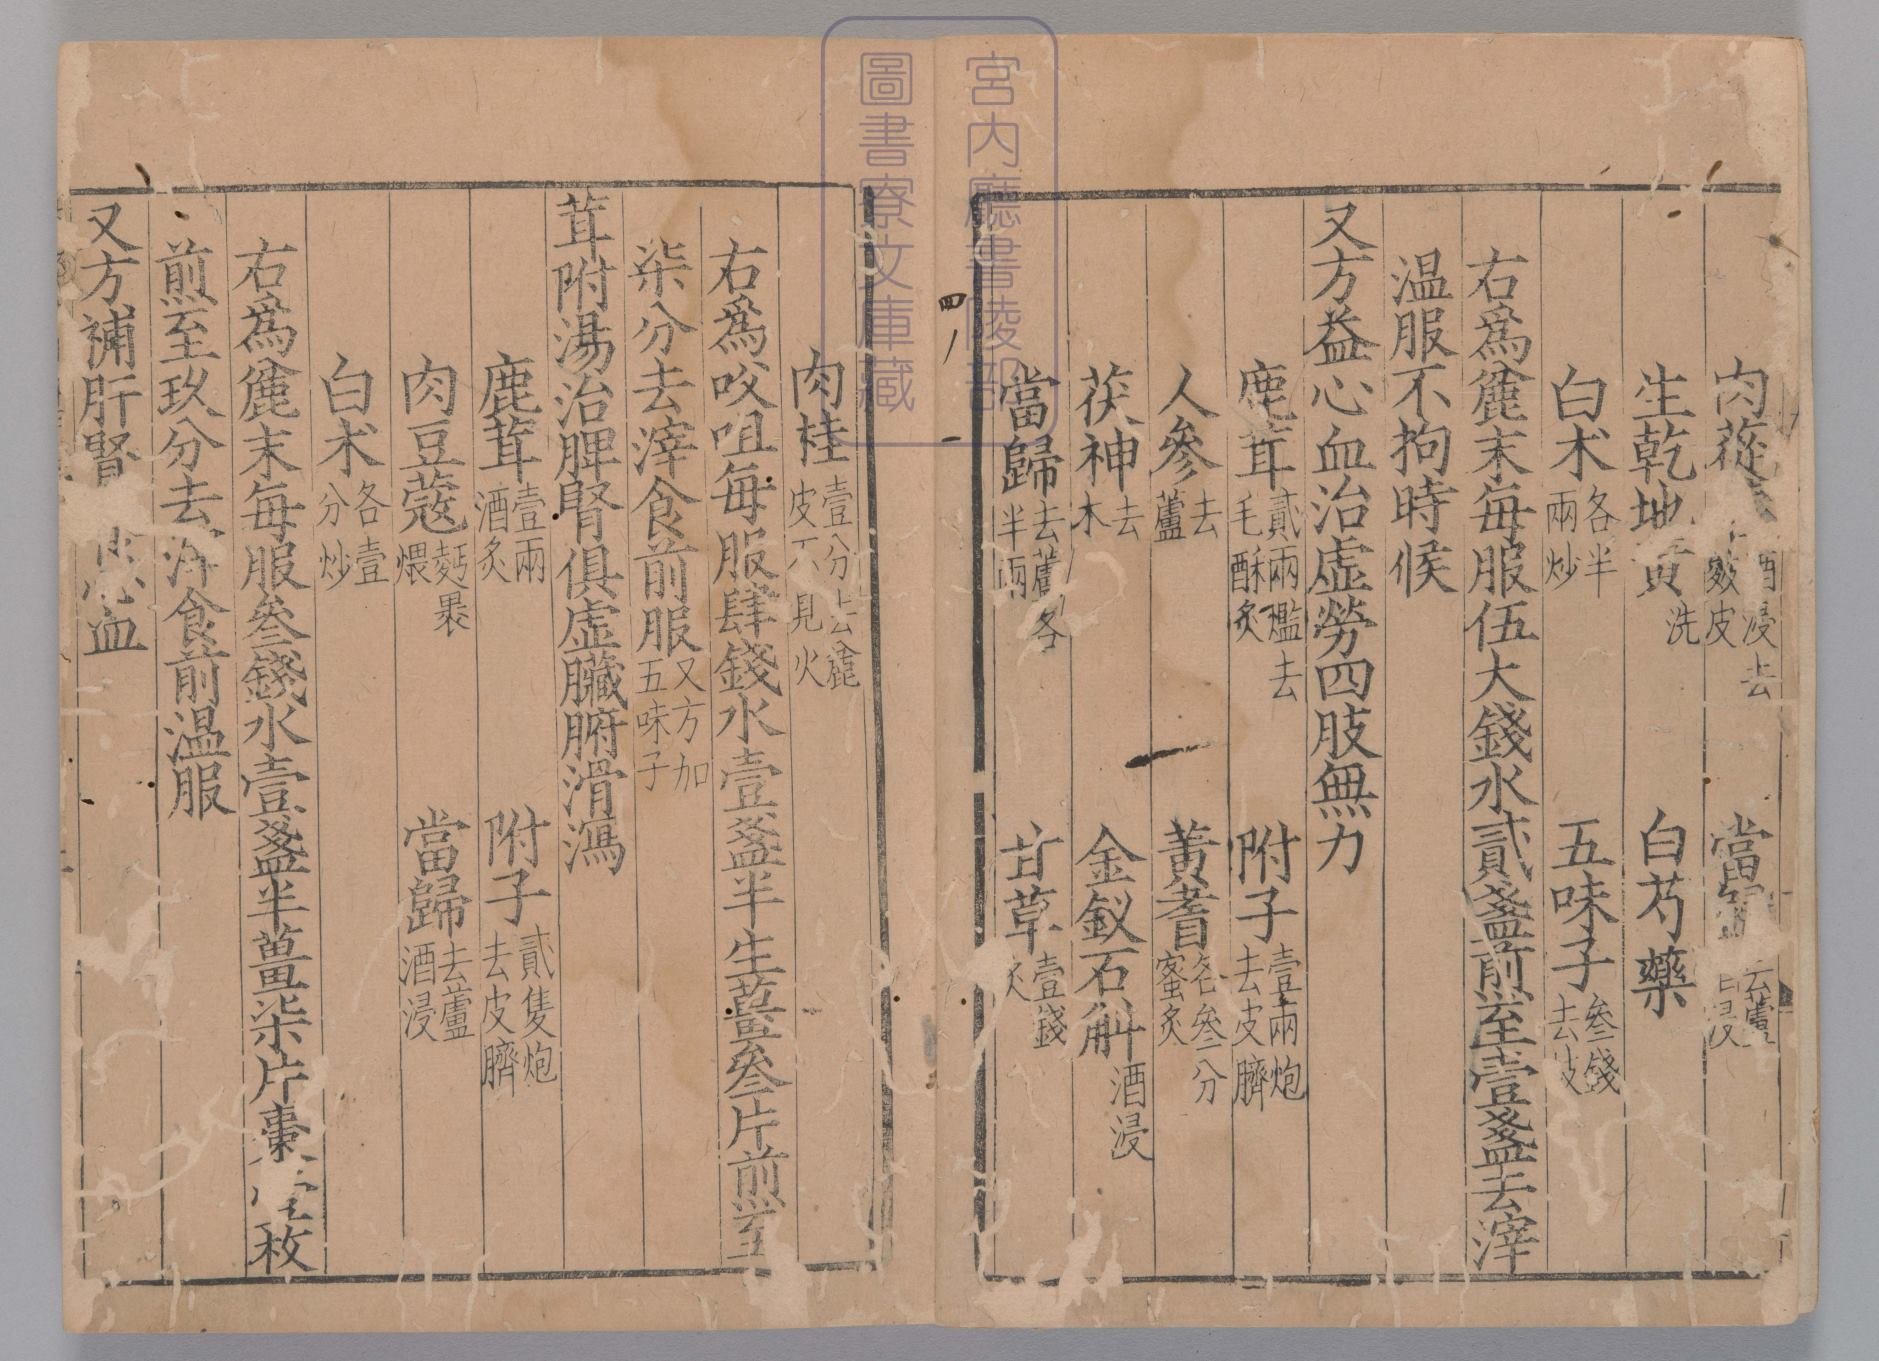 肉蓯 酒浸去皮 當 去蘆 浸
生乾地黃 洗 白芍藥
白朮 各半兩炒 五味子 叄錢去
右爲麄末每服伍大錢水貳盞煎至壹盞去滓
温服不拘時候
又方益心血治虛勞四肢無力
鹿茸 貳兩爁去毛酥炙 附子 壹兩炮去皮臍
人參 去蘆 黃耆 各叄分蜜炙
茯神 去木 金釵石斛 酒浸
當歸 去蘆各半兩 甘草 壹錢炙
肉桂 壹分去麄皮不見火
右爲㕮咀每服肆錢水壹盞半生薑叄片煎至
柒分去滓食前服 又方加五味子
茸附湯治脾腎俱虛臟腑滑瀉
鹿茸 壹兩酒炙 附子 貳隻炮去皮臍
肉豆蔻 麪裹煨 當歸 去蘆酒浸
白朮 各壹分炒
右爲麄末每服叄錢水壹盞半薑柒片棗枚
煎至玖分去滓食前温服
又方補肝腎血
宮内廳書陵部
圖書寮文庫藏
四八
一